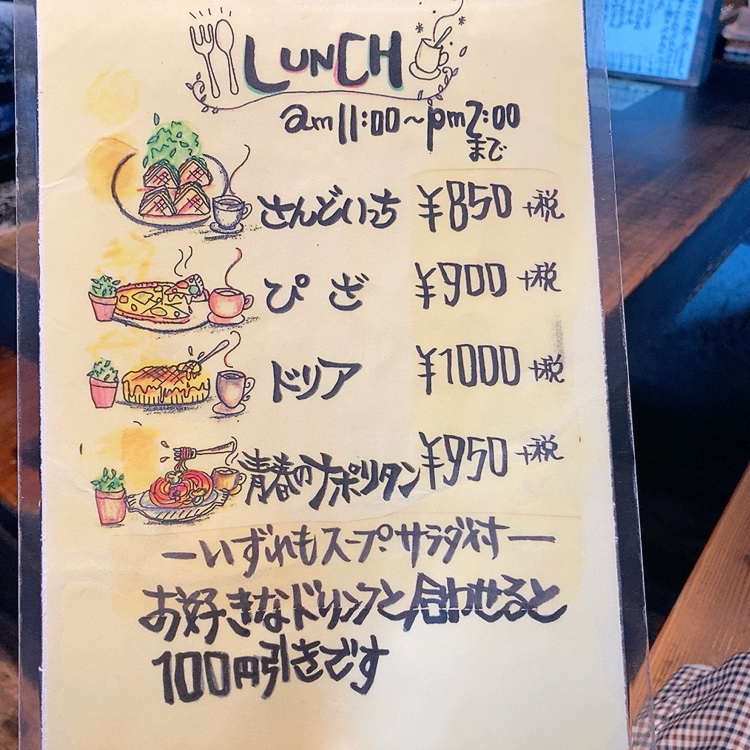 LUNCH
am11:00~pm2:00
まで
さんどいっち ¥850 +税
ぴざ ¥900 +税
ドリア ¥1000 +税
青春のナポリタン ¥950 +税
ーいずれもスープ・サラダ付すー
お好きなドリンクと合わせると
100円引きです